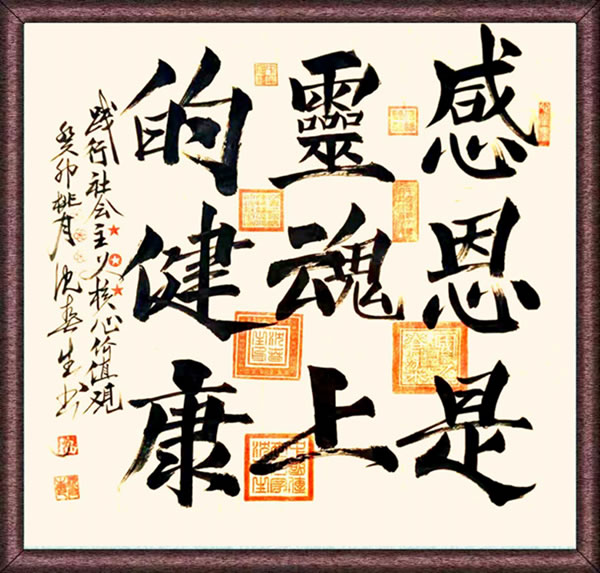 感恩是
靈魂上
的健康
践行社会主义核心价值观
癸卯桃月沈春生书